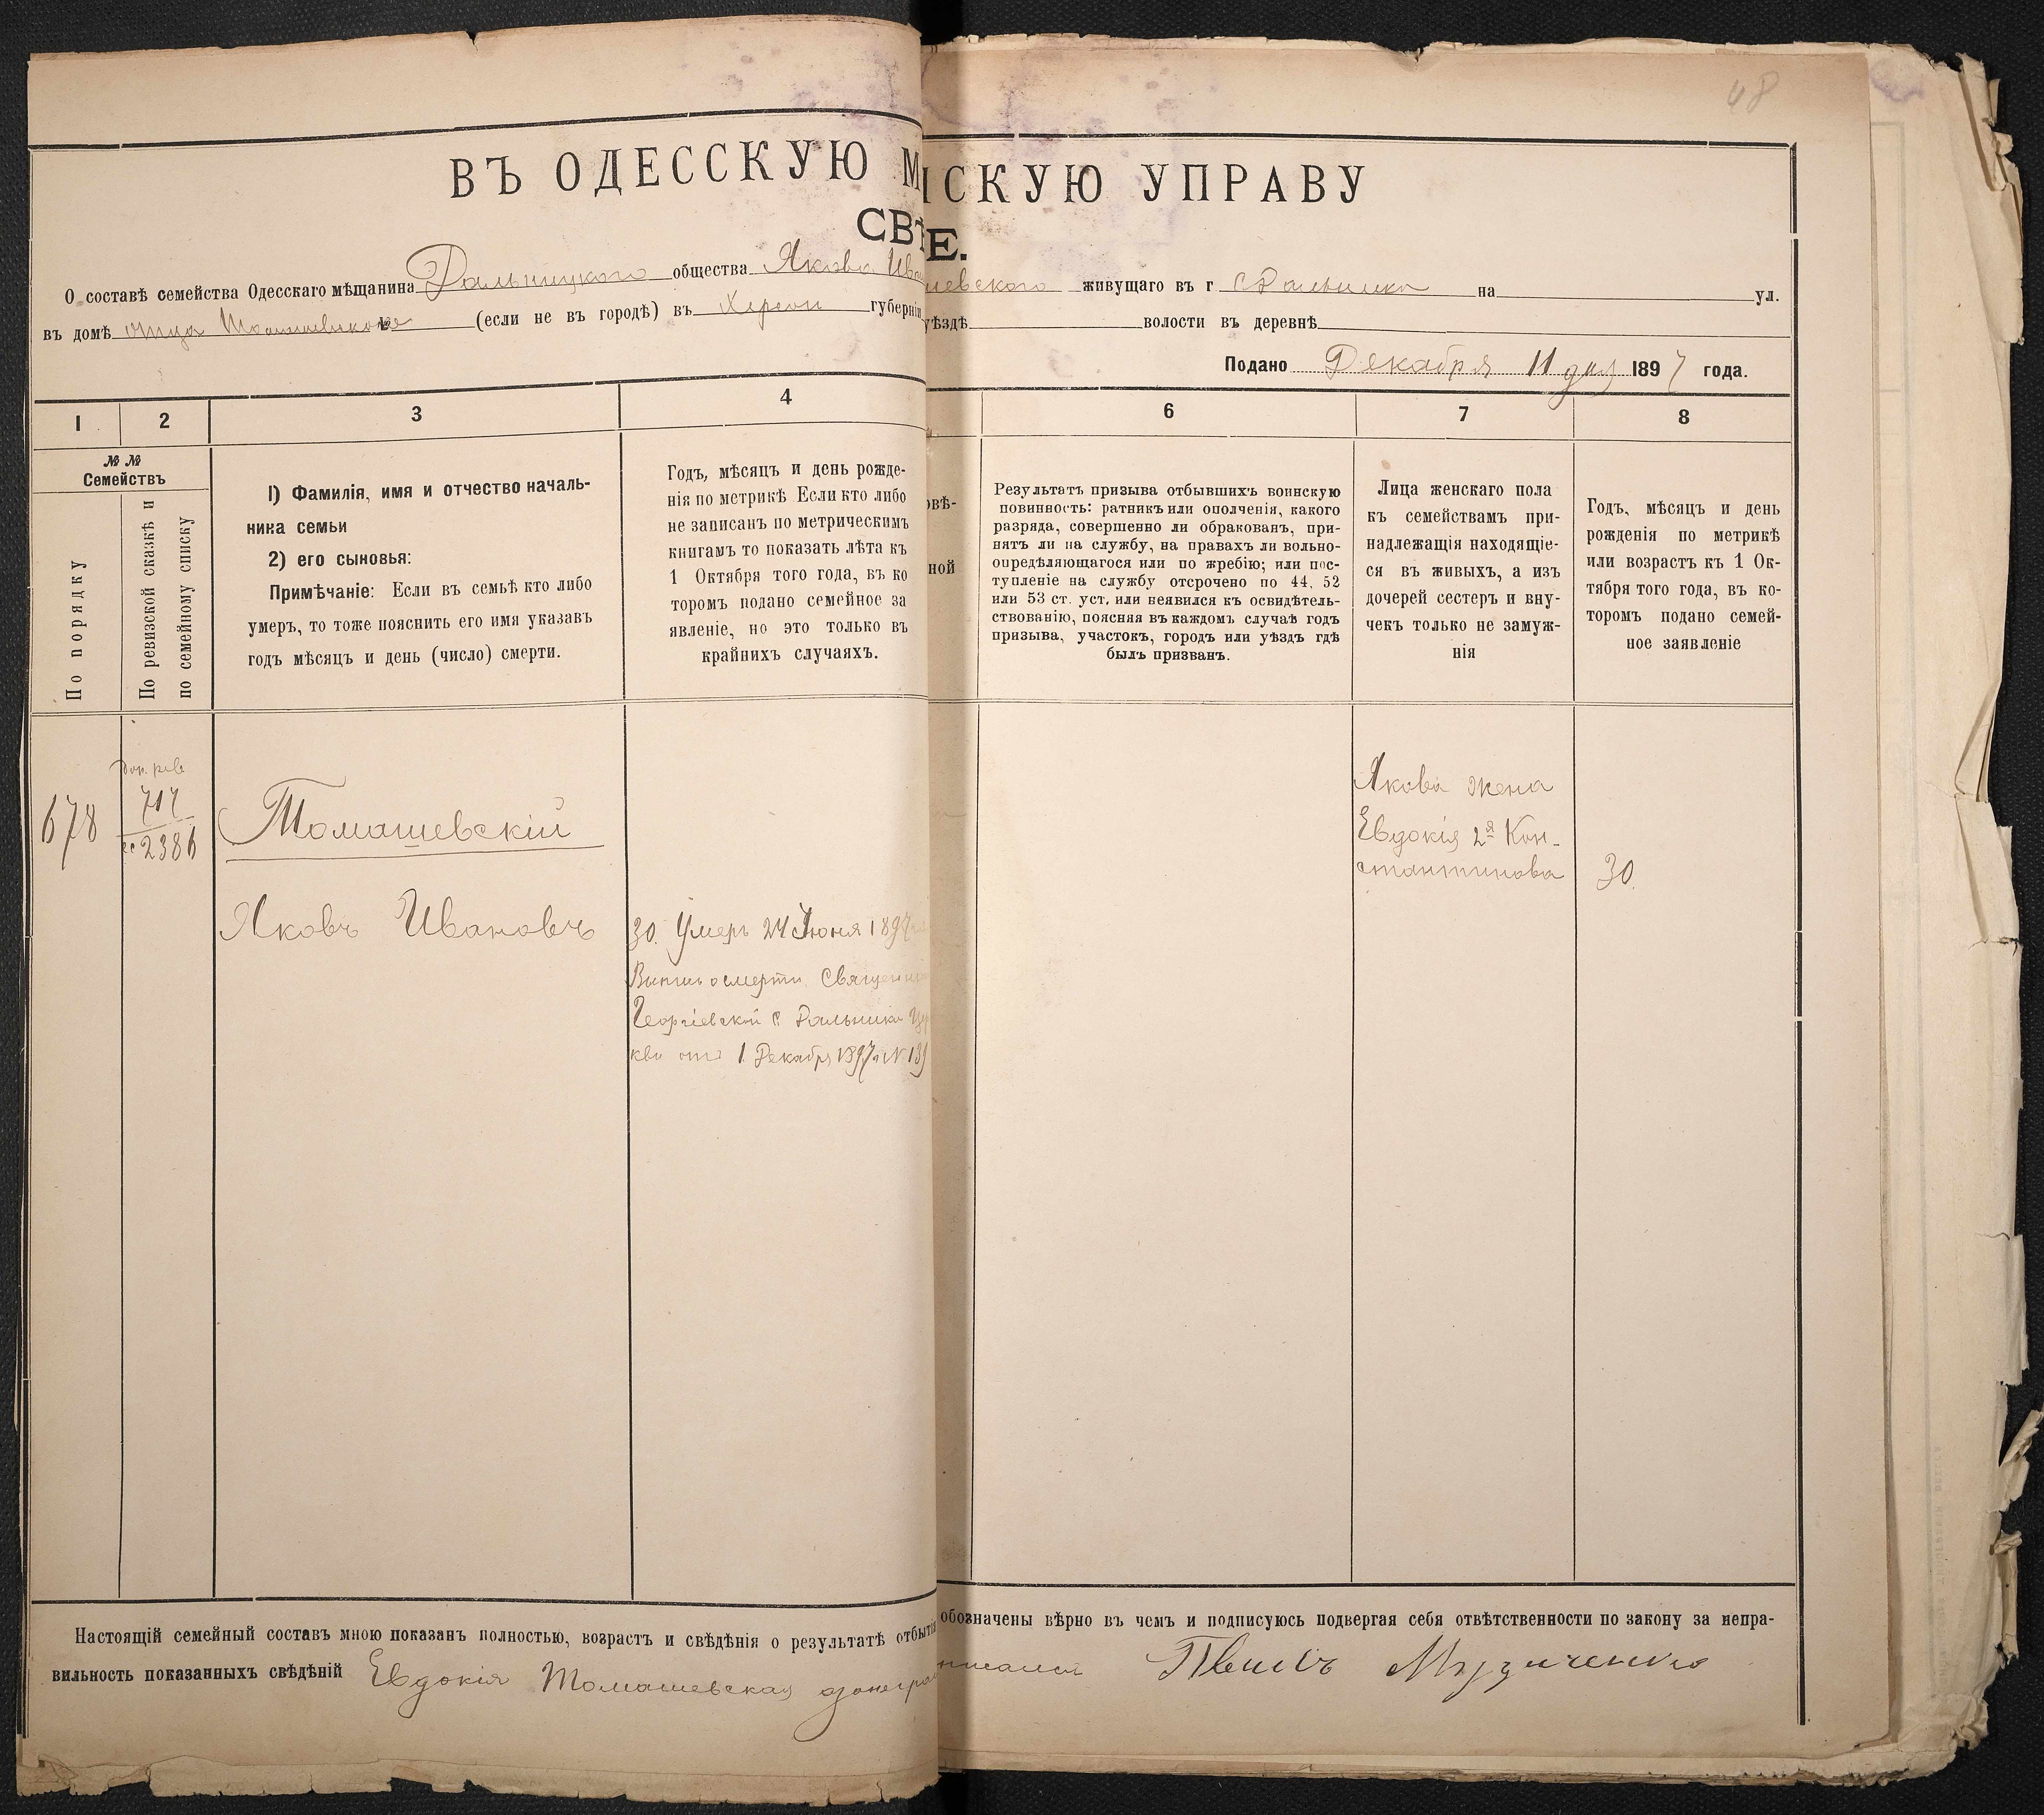 48
ВЪ ОДЕССКУЮ М
ІСКУЮ УПРАВУ
СВѢ
Е.
О составѣ семейства Одесскаго мѣщанина Дальницкого общества Якова Ива
невского живущаго въ г С Дальника на ул.
въ домѣ отца Томашевского № (если не въ городѣ) въ Херсон губерніи
уѣздѣ волости въ деревнѣ
Подано Декабря 11 дня 1897 года.
1 2 3 4
6 7 8
№ №
Семействъ
По порядку
По ревизской сказкѣ и
по семейному списку
1) Фамилія, имя и отчество началь-
ника семьи
2) его сыновья:
Примѣчаніе: Если въ семьѣ кто либо
умеръ, то тоже пояснить его имя указавъ
годъ мѣсяцъ и день (число) смерти.
Годъ, мѣсяцъ и день рожде-
нія по метрикѣ Если кто либо
не записанъ по метрическимъ
книгамъ то показать лѣта къ
1 Октября того года, въ ко
торомъ подано семейное за
явленіе, но это только въ
крайнихъ случаяхъ.
овѣ-
ной
Результатъ призыва отбывшихъ воинскую
повинность: ратникъ или ополченія, какого
разряда, совершенно ли обракованъ, при-
нятъ ли на службу, на правахъ ли вольно-
опредѣляющагося или по жребію; или пос-
тупленіе на службу отсрочено по 44, 52
или 53 ст. уст, или неявился къ освидѣтель-
ствованію, поясняя въ каждомъ случаѣ годъ
призыва, участокъ, городъ или уѣздъ гдѣ
былъ призванъ.
Лица женскаго пола
къ семействамъ при-
надлежащія находящіе-
ся въ живыхъ, а изъ
дочерей сестеръ и вну-
чекъ только не замуж-
нія
Годъ, мѣсяцъ и день
рожденія по метрикѣ
или возрастъ къ 1 Ок-
тября того года, въ ко-
торомъ подано семей-
ное заявленіе
678
доп. рев
717
сс 2386
Томашевскій
Яковъ Ивановъ
30. Умеръ 24 Іюня 1897
Выпись о смерти Священ
Георгіевской с. Дальника Цер
кви отъ 1 Декабря 1897 г № 139
Якова жена
Евдокія 2я Кон-
стантинова
30.
Настоящій семейный составъ мною показанъ полностью, возрастъ и свѣдѣнія о результатѣ отбытія
обозначены вѣрно въ чемъ и подписуюсь подвергая себя отвѣтственности по закону за непра-
вильность показанныхъ свѣдѣній Евдокія Томашевская